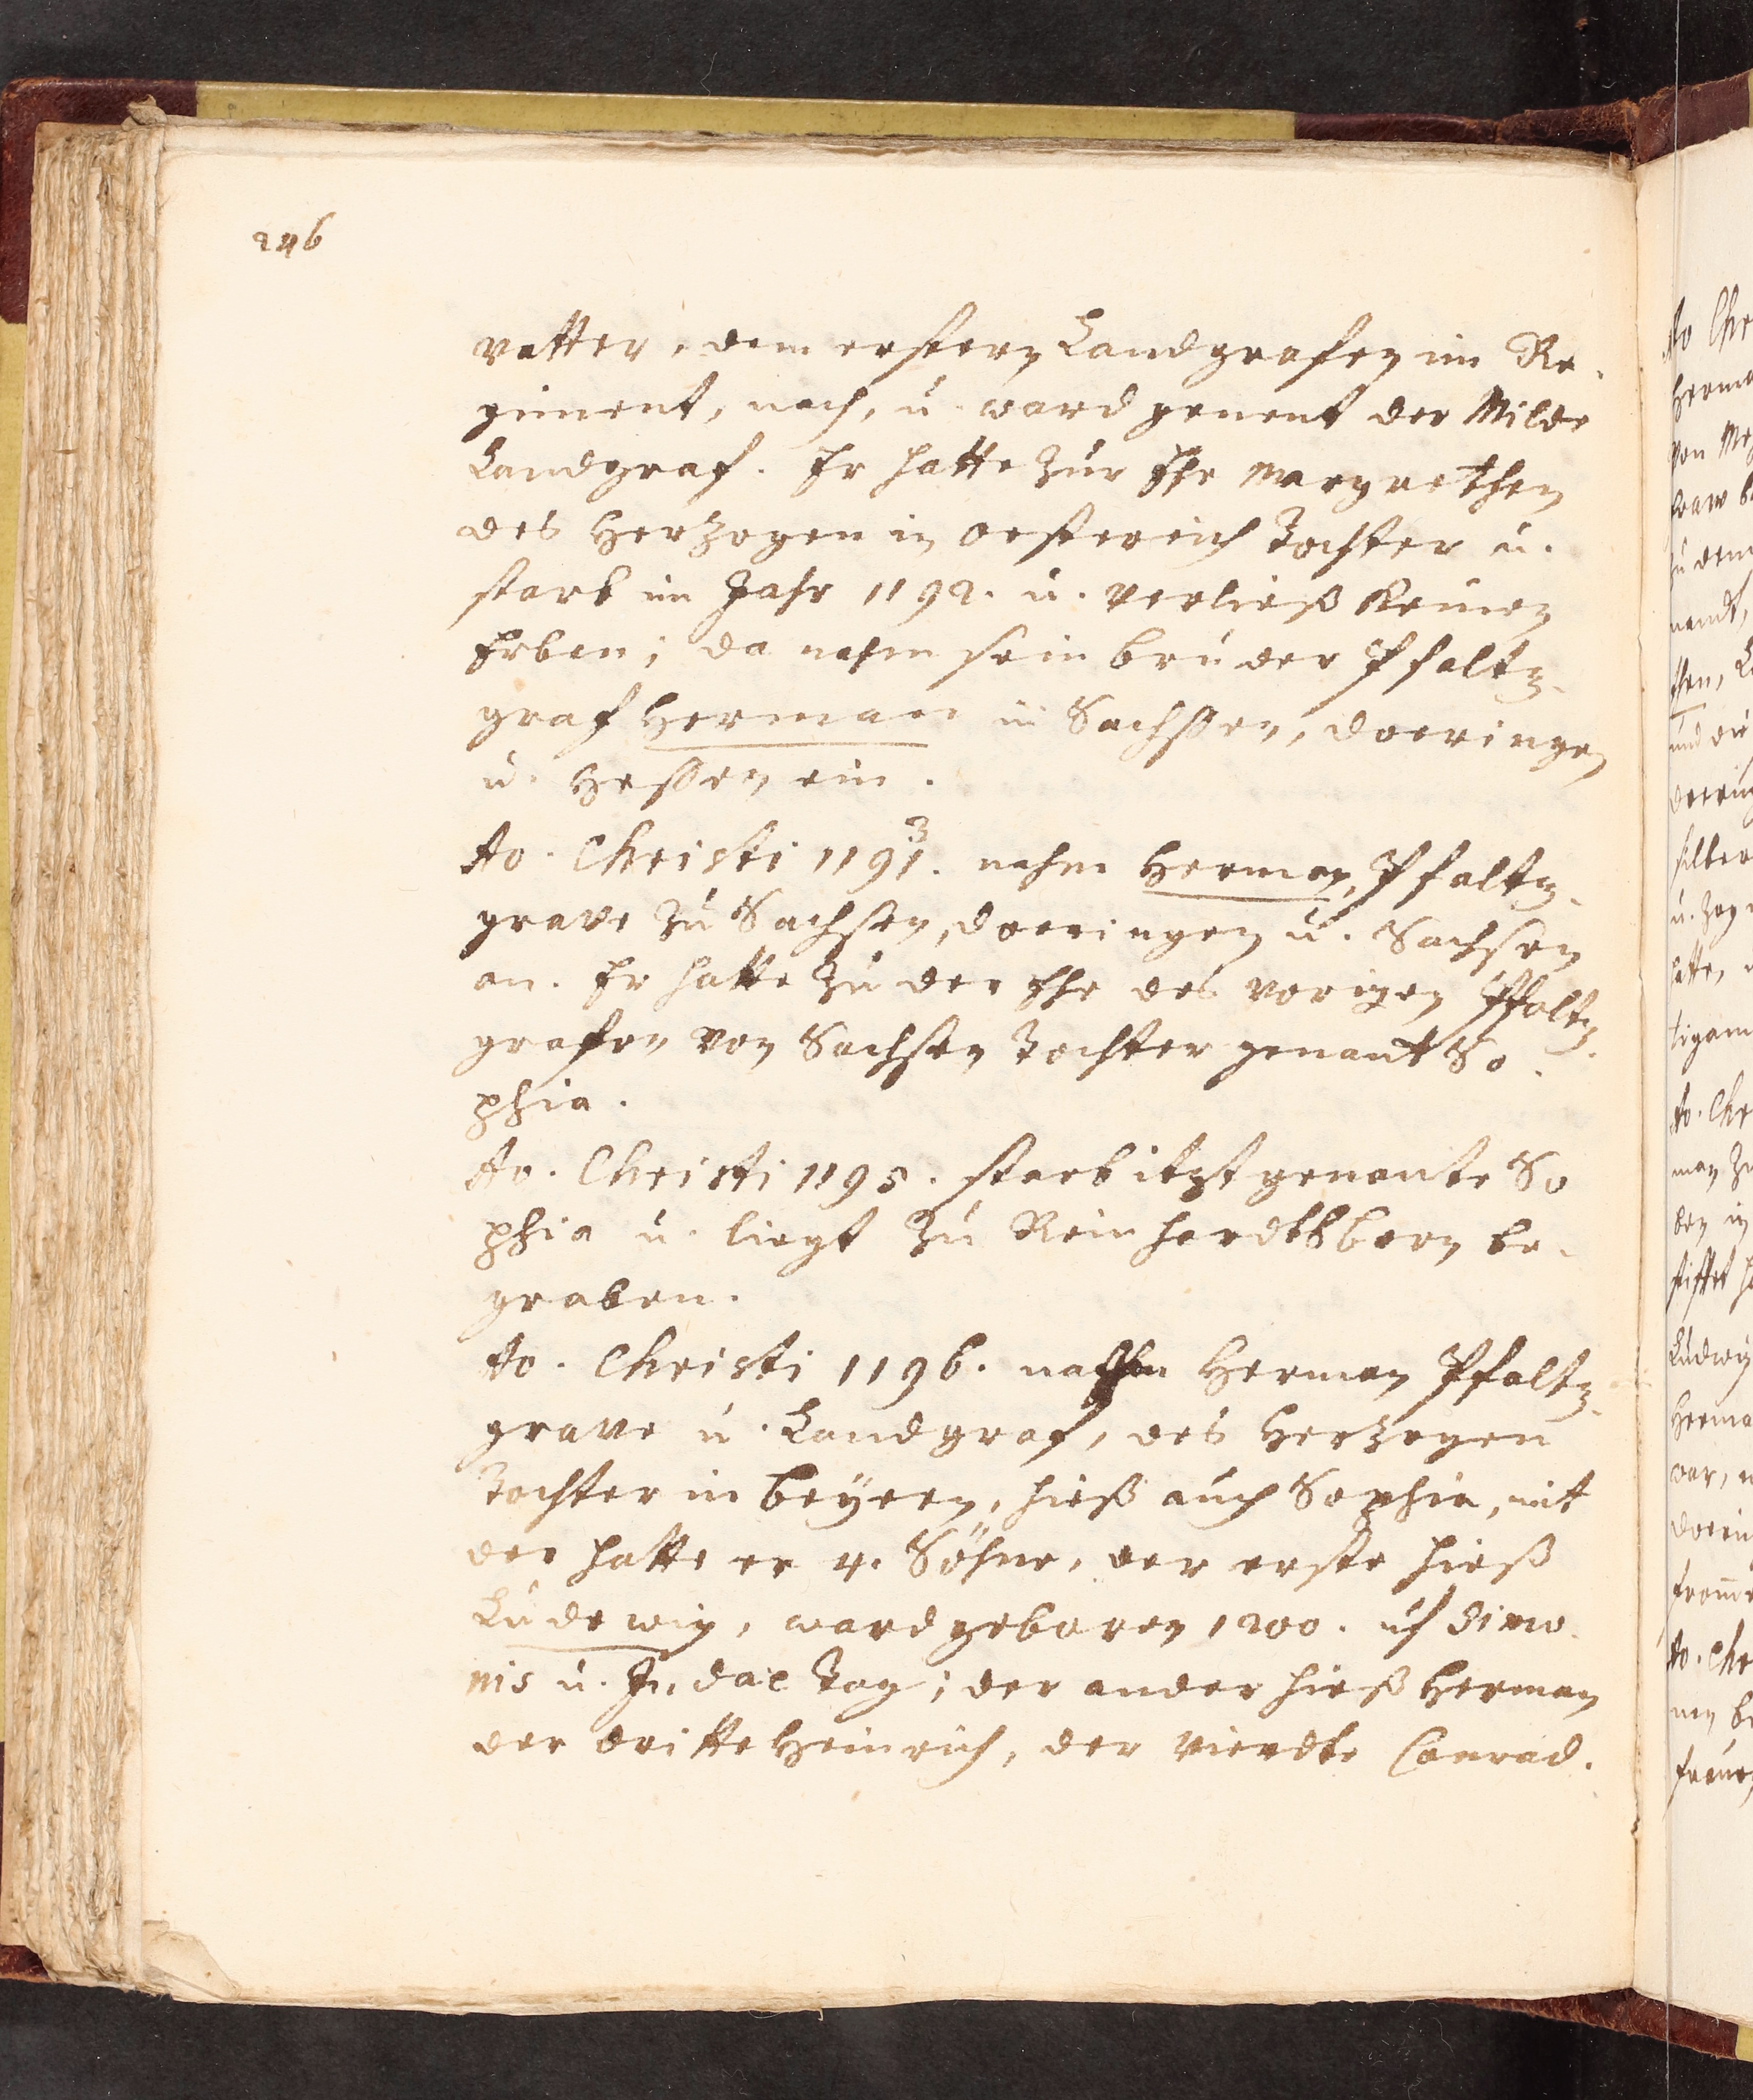 246
vatter, dem erstern Landgrafen im Re-
giment, nach, u. ward genent der Milde
Landgraf. Er hatte zur Ehe Margrethen
des Hertzogen in Oestereich Tochter u.
starb im Jahr 1192. u. verließ keinen
Erben; da nahm sein bruder Pfaltz-
graf Herman in Sachssen, doeringen
u. Hessen ein.
Ao. Christi 1191. 3 nahm Herman, Pfaltz-
grave zu Sachsen, doeringen u. Sachsen
an. Er hatte zu der Ehe des vorigen Pfaltz-
grafen von Sachsen Tochter genant So-
phia.
Ao. Christi 1195. starb itzt genante So
phia u. liegt zu Reinhardtsborn be-
graben.
Ao. Christi 1196. nahm Herman Pfaltz-
grave u. Landgraf, des Hertzogen
Tochter in beÿern, hieß auch Sophia, mit
der hatte er 4. Söhne, der erste hieß
Ludewig, ward geboren 1200. uf Simo-
nis u. Judae Tag; der ander hieß Herman
der dritte Heinrich, der vierdte Conrad.
Ao Chr
Herma
von Me
zu dem
nandt,
und die
doerin
silber
u. zog
hatte,
ligam
Ao. Chr
man zu
den in
stifftet
Ludwig
Herma
war,
doerin
Ao. Chr